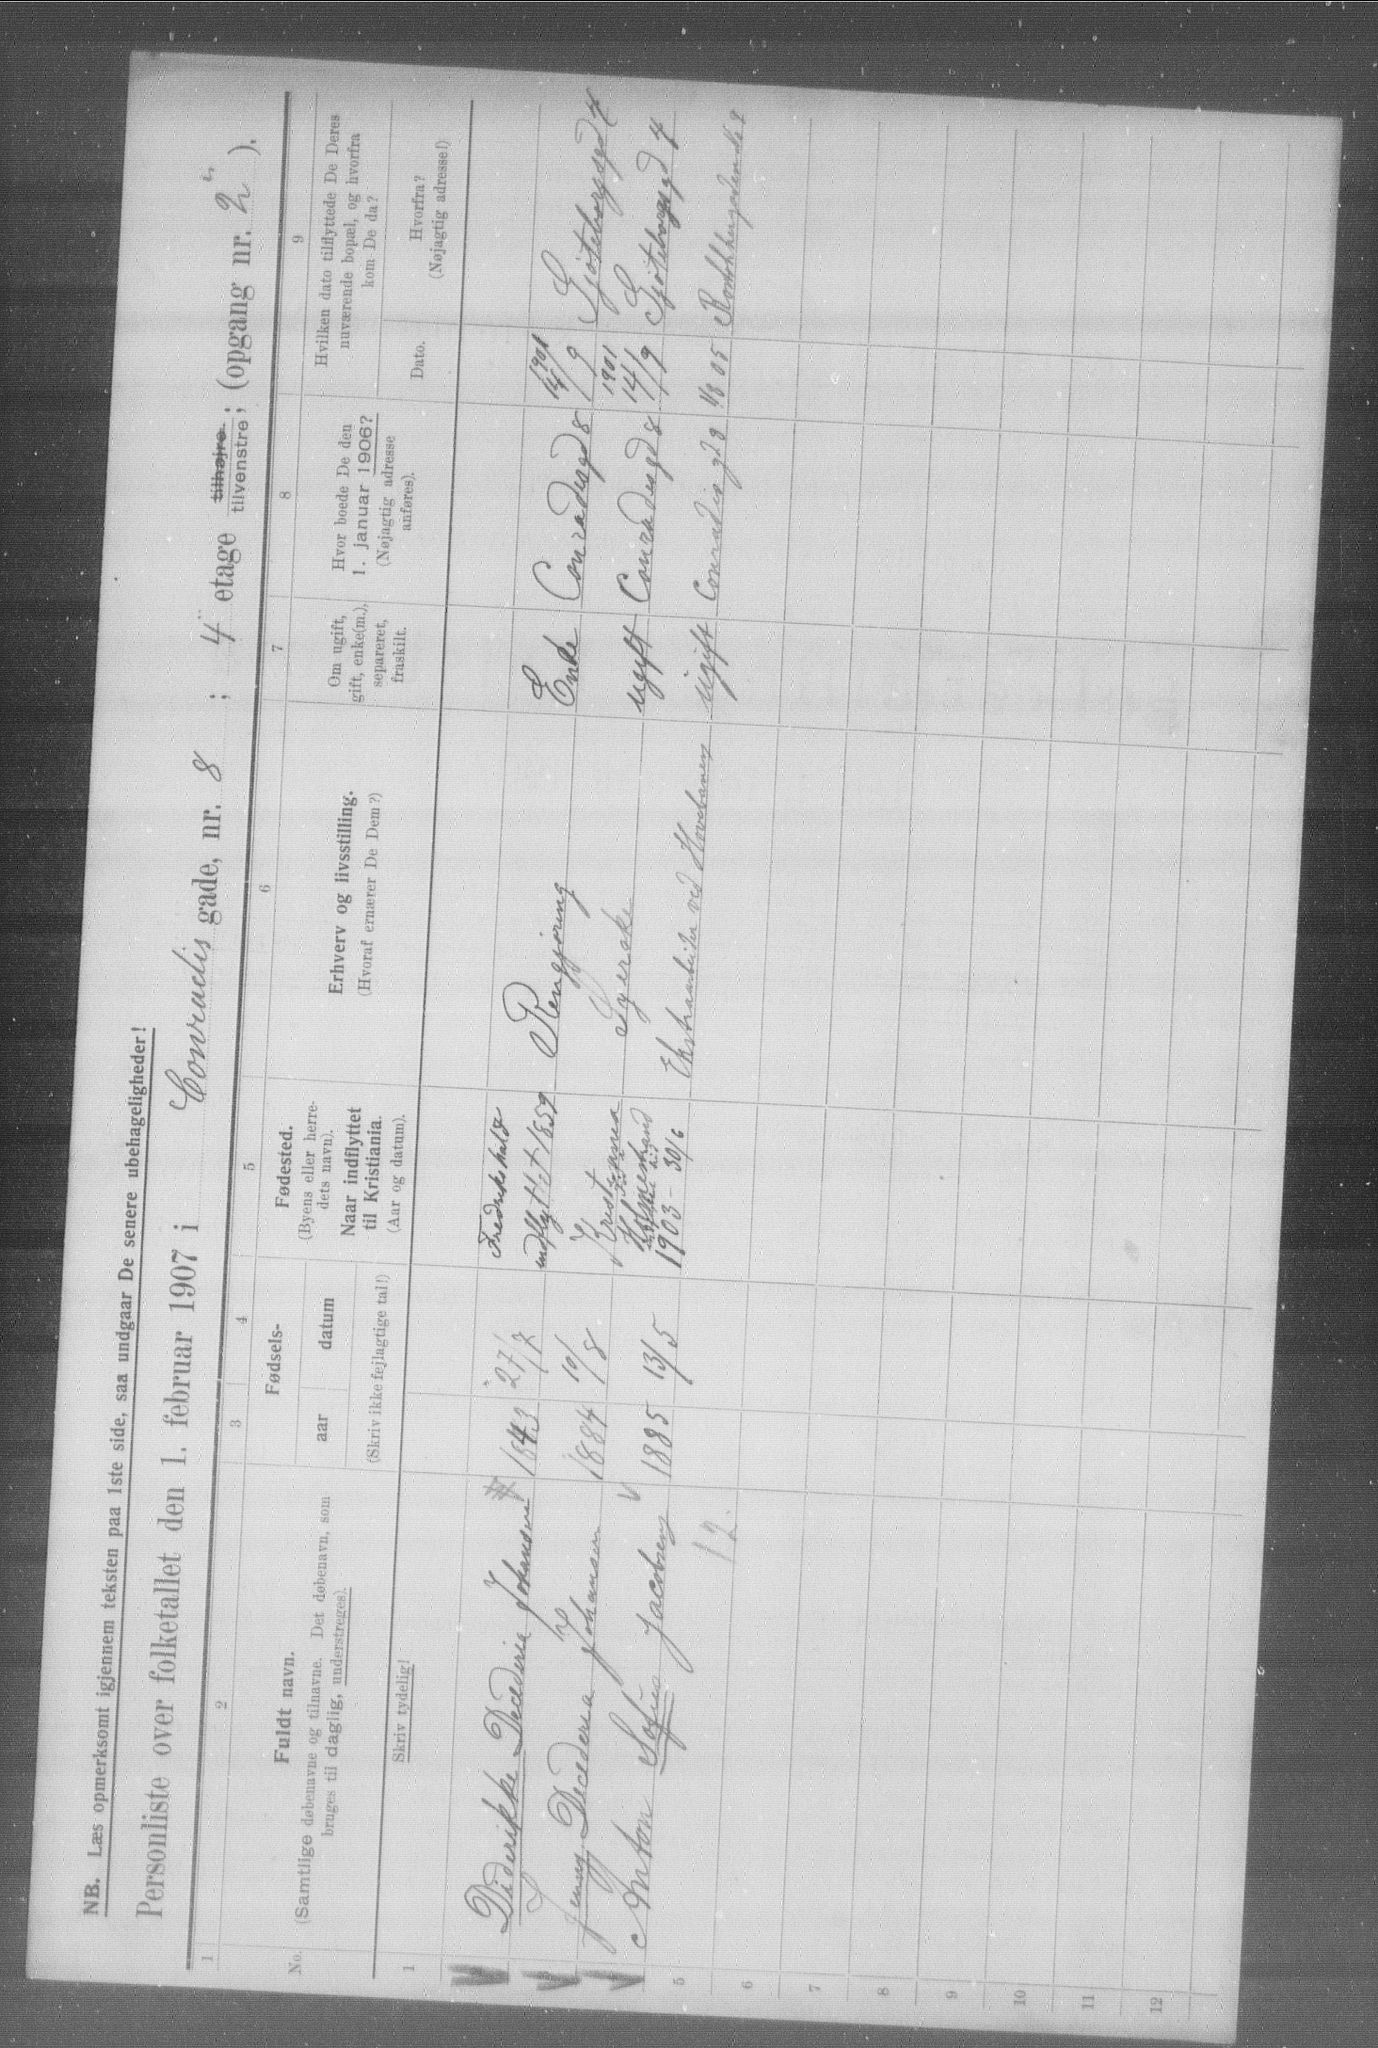 NB. Læs opmerksomt igjennem teksten paa 1ste side, saa undgaar De senere ubehageligheder!
Personliste over folketallet den 1. februar 1907 i Conradis gade, nr. 8 ; 4 etage tilhøjre tilvenstre; (opgang nr. 2 ).
1 2 3 4 5 6 7 8 9
No.
Fuldt navn.
(Samtlige døbenavne og tilnavne. Det døbenavn, som
bruges til daglig, understreges).
Skriv tydelig!
Fødsels-
aar datum
(Skriv ikke fejlagtige tal!)
Fødested.
(Byens eller herre-
dets navn).
Naar indflyttet
til Kristiania.
(Aar og datum).
Erhverv og livsstilling.
(Hvoraf ernærer De Dem?)
Om ugift,
gift, enke(m.),
separeret,
fraskilt.
Hvor boede De den
1. januar 1906?
(Nøjagtig adresse
anføres).
Hvilken dato tilflyttede De Deres
nuværende bopæl, og hvorfra
kom De da?
Dato.
Hvorfra?
(Nøjagtig adresse!)
1
Diderikke Decederia Johansen 1843 27/7 Fredrikshald indflyttet 1859 Rengjøring Enke Conradisgd 8 1901 14/9 Gjøteborggd 4
Jenny Decederia Johansen 1884 10/8 Kristiania Syerske ugift Conradisgd 8 1901 14/9 Gjøteborggd 4
Anton Sofus Jacobsen 1885 13/5 Holmestrand 1903 - 30/6 Ekstraarbeider ved Hovebanen Ugift Conradis gd 8 1/8 05
12.
5
6
7
8
9
10
11
12